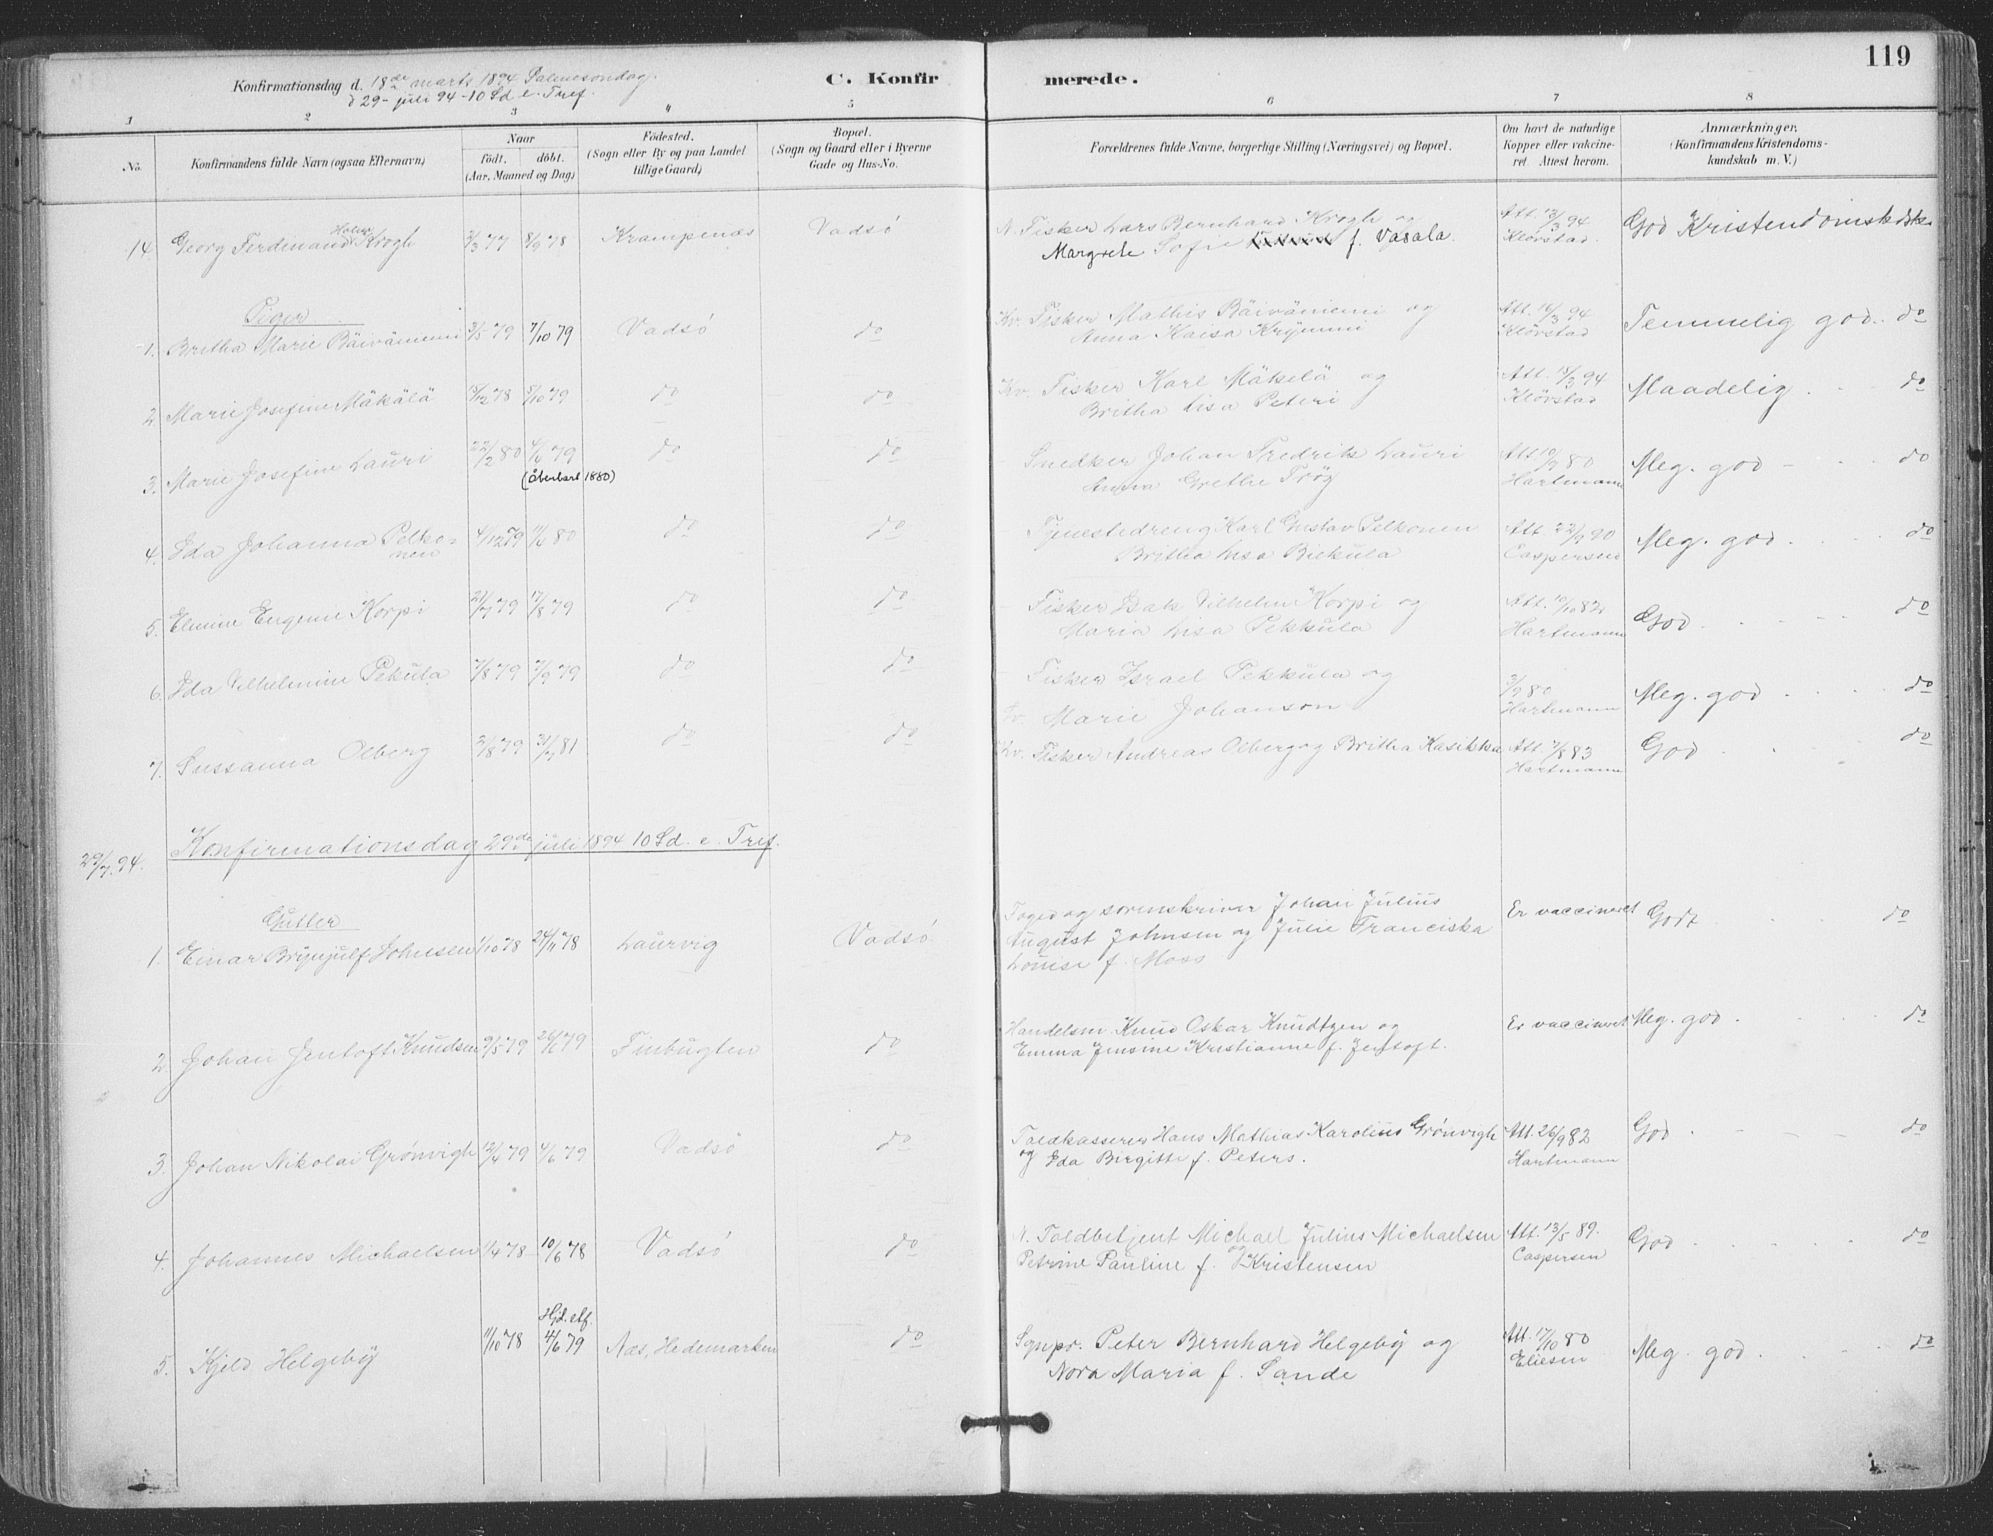 119
Konfirmationsdag d. 18de marts 1894 Palmesøndag.
d 29 - juli 94 - 10 Sd e. Tref.
C. Konfirmerede.
1 2 3 4 5 6 7 8
No.
Konfirmandens fulde Navn (ogsaa Efternavn)
Naar
født. døbt.
(Aar, Maaned og Dag)
Fødested.
(Sogn eller By og paa Landet
tillige Gaard)
Bopæl.
(Sogn og Gaard eller i Byerne
Gade og Hus-No.
Forældrenes fulde Navne, borgerlige Stilling (Næringsvei) og Bopæl.
Om havt de naturlige
Kopper eller vakcine-
ret. Attest herom.
Anmærkninger.
(Konfirmandens Kristendoms-
kundskab m. V.)
14 Georg Ferdinand Krogh 3/3 77 8/9 78 Krampenæs Vadsö N. Fisker Lars Bernhard Krogh og
Margrete Sofie f. Vasala.
Att. 13/3 94
Klövstad.
God Kristendomskdsk.
Piger
1. Britha Marie Bäivâniemi 3/5 79 7/10 79 Vadsö do Kv. Fisker Mathis Bäivâniemi og
Anna Kaisa Krymmi
Att. 14/3 94
Klövstad
Temmelig god. do
2. Marie Josefine Mäkälä 18/12 78 5/10 79 do do Kv. Fisker Karl Mäkelä og
Britha Lisa Peteri
Att. 15/3 94
Klövstad
Maadelig do
3. Marie Josefine Lauri 22/2 80 4/6 79 do do Snedker Johan Fredrik Lauri
(åbenbart 1880)
Anna Grethe Tröy
Att 10/9 80
Hartmann
Meg. god do
4. Ida Johanna Pelko-
nen
4/12 79 11/6 80 do do Tjenestedreng Karl Gustav Pelkonen
Britha Lisa Biekula
Att. 22/9 90
Caspersen
Meg. god do
5. Elmine Eugenie Korpi 21/7 79 17/8 79 do do Fisker Isak Vilhelm Korpi og
Maria Lisa Pekkula
Att. 10/10 82
Hartmann
God do
6. Ida Vilhelmine Pekula 7/8 79 7/9 79 do do Fisker Israel Pekkula og
Kv. Marie Johanson
3/9 80
Hartmann
Meg. god do
7. Sussanna Olberg 2/8 79 31/7 81 do do Kv. Fisker Andreas Olberg og Britha Kasikka
Att. 7/8 83
Hartmann
God do
29/7 94. Konfirmationsdag 29de juli 1894 10 Sd. e. Tref.
Gutter
1. Einar Brynjulf Johnsen 1/10 78 24/11 78 Laurvig Vadsö Foged og sorenskriver Johan Julius
August Johnsen og Julie Franciska
Louise f. Moss
Er vaccineret
Godt do
2. Johan Jentoft Knudsen 9/5 79 26/6 79 Finbugten do Handelsm. Knud Oskar Knudtzen og
Emma Jensine Kristianne f. Jentoft.
Er vaccineret
Meg. god do
3. Johan Nikolai Grønvigh 12/4 79 4/6 79 Vadsö do Toldkasserer Hans Mathias Karolius Grønvigh
og Ida Birgitte f. Peters.
Att. 26/9 82
Hartmann
God do
4. Johannes Michaelsen 1/4 78 10/6 78 Vadsö do N. Toldbetjent Michael Julius Michaelsen
og
Petrine Pauline f. Kristensen
Att. 13/5 89.
Caspersen
God do
5. Kjeld Helgeby 11/10 78 Hjd. stf. 4/6 79 Næs, Hedemarken do Sgnpr. Peter Bernhard Helgeby og
Nora Maria f. Sande
Att. 17/10 80
Eliesen
Meg. god. do